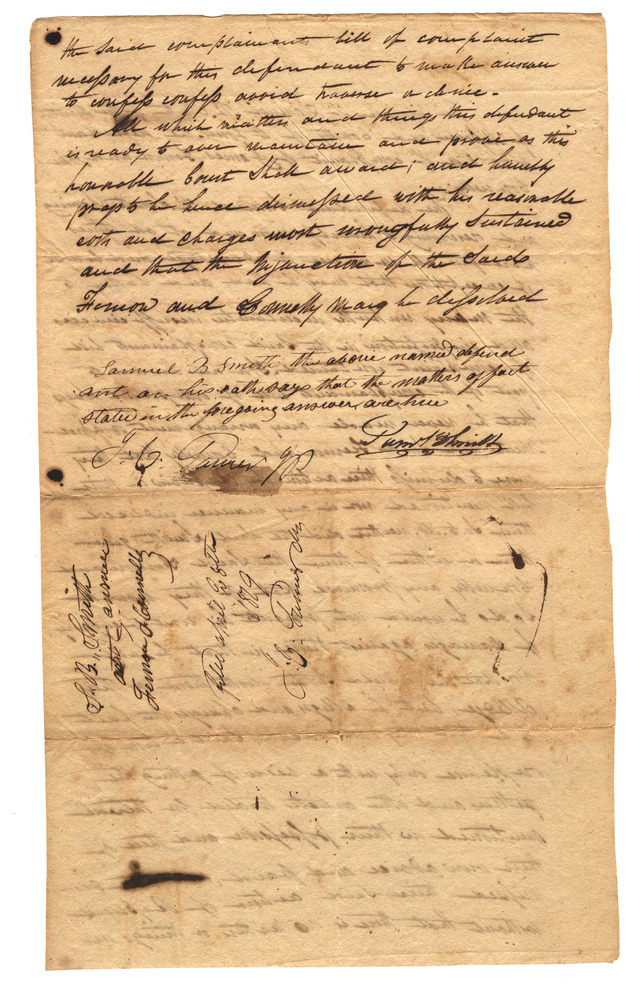 the said complainants bill of complaint
necessary for this defendant to make answer
to confess confess avoid traverse or denie.
All which matters and things this defendant
is ready to aver maintain and prove as this
honorable Court Shall award; and humbly
prays to be hence dismissed with his reasonable
costs and charges most wrongfully Sustained
and that the Injunction of the Said
Fernow and Connelly may be dissolved
Samuel B Smith the above named defend
ant on his oath says that the matters of fact
stated in the foregoing answer are true
Saml B Smith
T. C. JP
S. B. Smith
answer
Connelly
filed april 30th
1829